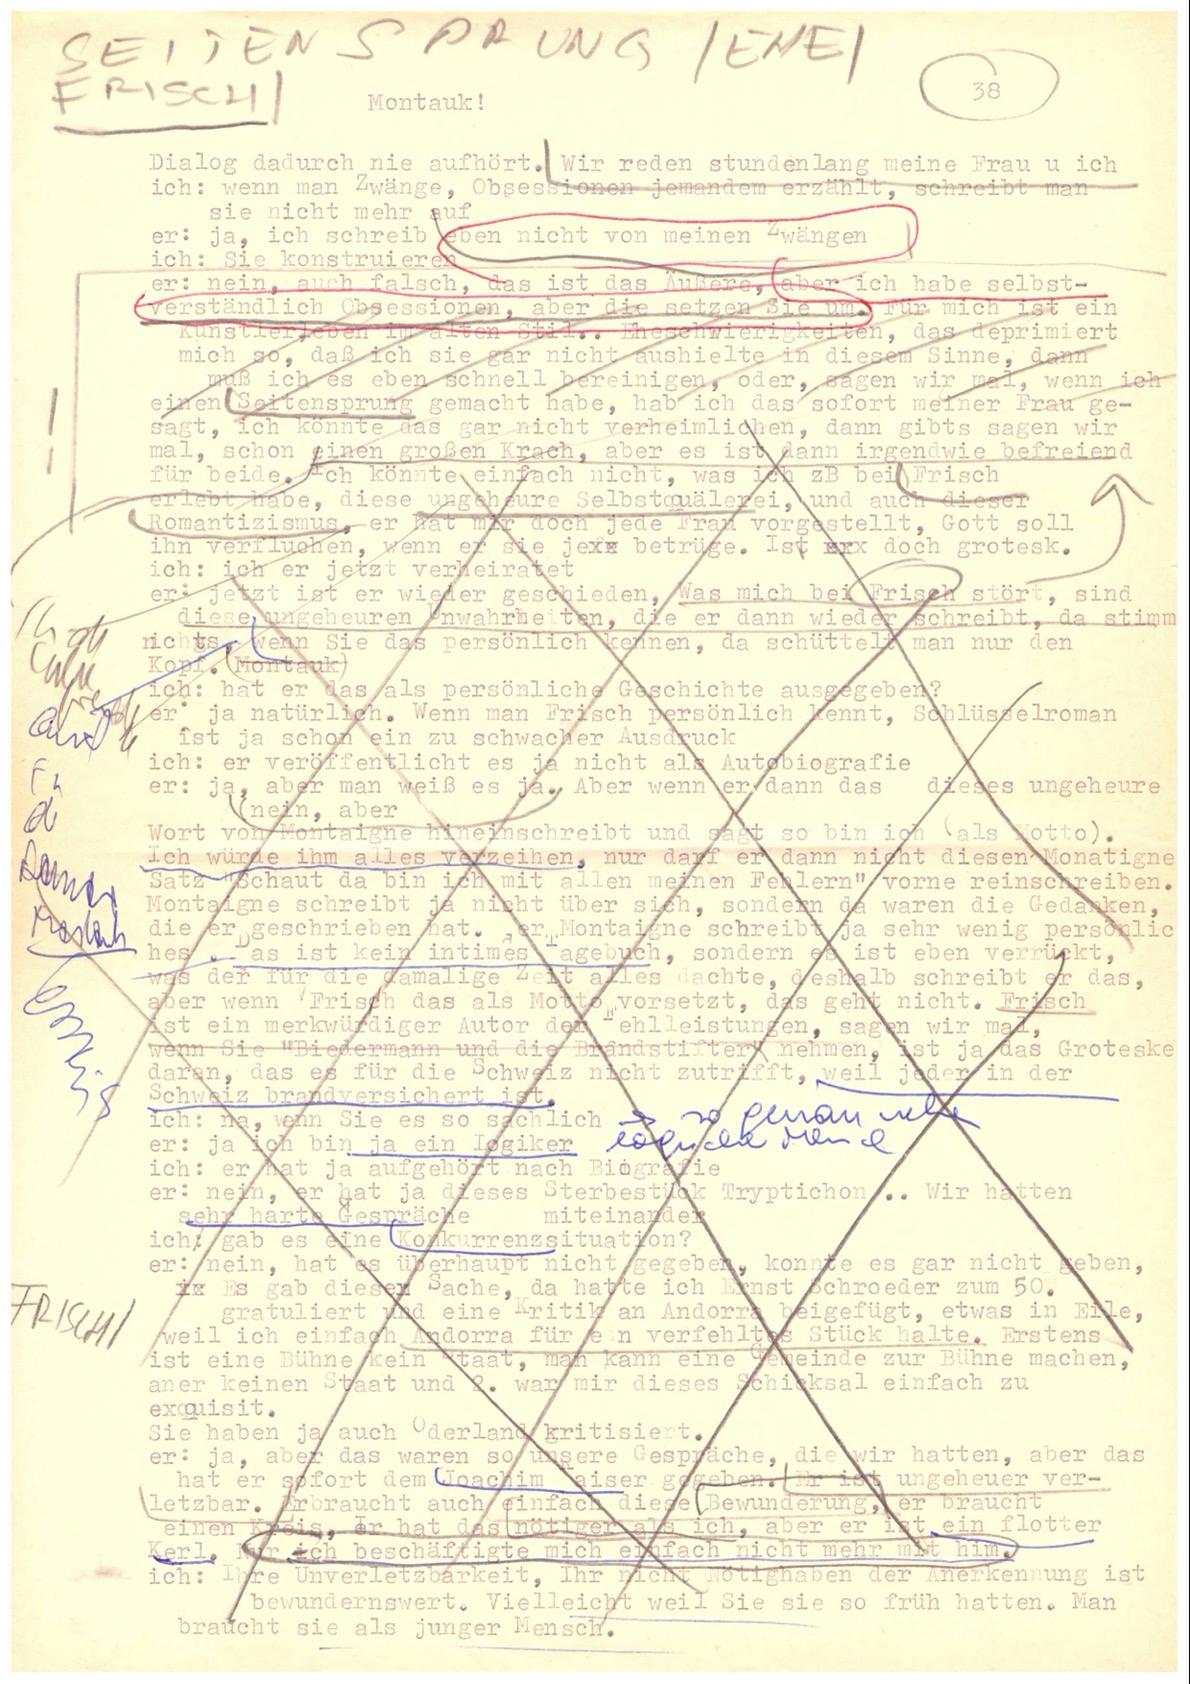 SEITENSPRUNG /EHE/
FRISCH/
Montauk!
38
Dialog dadurch nie aufhört. Wir reden stundenlang meine Frau u ich
ich: wenn man Zwänge, Obsessionen jemandem erzählt, schreibt man
sie nicht mehr auf
er: ja, ich schreib eben nicht von meinen Zwängen
ich: Sie konstruieren
er: nein, auch falsch, das ist das Äußere, aber ich habe selbst-
verständlich Obsessionen, aber die setzen Sie um. Für mich ist ein
Künstlerleben im alten Stil.. Eheschwierigkeiten, das deprimiert
mich so, daß ich sie gar nicht aushielte in diesem Sinne, dann
muß ich es eben schnell bereinigen, oder, sagen wir mal, wenn ich
einen Seitensprung gemacht habe, hab ich das sofort meiner Frau ge-
sagt, ich könnte das gar nicht verheimlichen, dann gibts sagen wir
mal, schon einen großen Krach, aber es ist dann irgendwie befreiend
für beide. Ich könnte einfach nicht, was ich zB bei Frisch
erlebt habe, diese ungeheure Selbstquälerei, und auch dieser
Romantizismus, er hat mir doch jede Frau vorgestellt, Gott soll
ihn verfluchen, wenn er sie jexx betrüge. Ist xrx doch grotesk.
ich: ich er jetzt verheiratet
er: jetzt ist er wieder geschieden, Was mich bei Frisch stört, sind
diese ungeheuren Unwahrheiten, die er dann wieder schreibt, da stimm
nichts, wenn Sie das persönlich kennen, da schüttelt man nur den
Kopf. (Montauk)
ich: hat er das als persönliche Geschichte ausgegeben?
er: ja natürlich. Wenn man Frisch persönlich kennt, Schlüsselroman
ist ja schon ein zu schwacher Ausdruck
ich: er veröffentlicht es ja nicht als Autobiografie
er: ja, aber man weiß es ja. Aber wenn er dann das dieses ungeheure
(nein, aber
Wort von Montaigne hineinschreibt und sagt so bin ich (als Motto).
Ich würde ihm alles verzeihen, nur darf er dann nicht diesen Monatigne
Satz "Schaut da bin ich mit allen meinen Fehlern" vorne reinschreiben.
Montaigne schreibt ja nicht über sich, sondern da waren die Gedanken,
die er geschrieben hat. Der Montaigne schreibt ja sehr wenig persönlic
hes . Das ist kein intimes Tagebuch, sondern es ist eben verrückt,
was der für die damalige Zeit alles dachte, deshalb schreibt er das,
aber wenn Frisch das als Motto vorsetzt, das geht nicht. Frisch
ist ein merkwürdiger Autor der Fehlleistungen, sagen wir mal,
wenn Sie "Biedermann und die Brandstifter" nehmen, ist ja das Groteske
daran, das es für die Schweiz nicht zutrifft, weil jeder in der
Schweiz brandversichert ist.
ich: na, wenn Sie es so sachlich
er: ja ich bin ja ein Logiker
ich: er hat ja aufgehört nach Biografie
er: nein, er hat ja dieses Sterbestück Tryptichon .. Wir hatten
sehr harte Gespräche miteinander
ich: gab es eine Konkurrenzsituation?
er: nein, hat es überhaupt nicht gegeben, konnte es gar nicht geben,
ix Es gab diesen Sache, da hatte ich Ernst Schroeder zum 50.
FRISCH/
gratuliert und eine Kritik an Andorra beigefügt, etwas in Eile,
weil ich einfach Andorra für ein verfehltes Stück halte. Erstens
ist eine Bühne kein Staat, man kann eine Gemeinde zur Bühne machen,
aner keinen Staat und 2. war mir dieses Schicksal einfach zu
exquisit.
Sie haben ja auch Oderland kritisiert.
er: ja, aber das waren so unsere Gespräche, die wir hatten, aber das
hat er sofort dem Joachim Kaiser gegeben. Er ist ungeheuer ver-
letzbar. Erbraucht auch einfach diese Bewunderung, er braucht
einen Kreis, Er hat das nötiger als ich, aber er ist ein flotter
Kerl. Nur ich beschäftigte mich einfach nicht mehr mit him.
ich: Ihre Unverletzbarkeit, Ihr nicht Nötighaben der Anerkennung ist
bewundernswert. Vielleicht weil Sie sie so früh hatten. Man
braucht sie als junger Mensch.